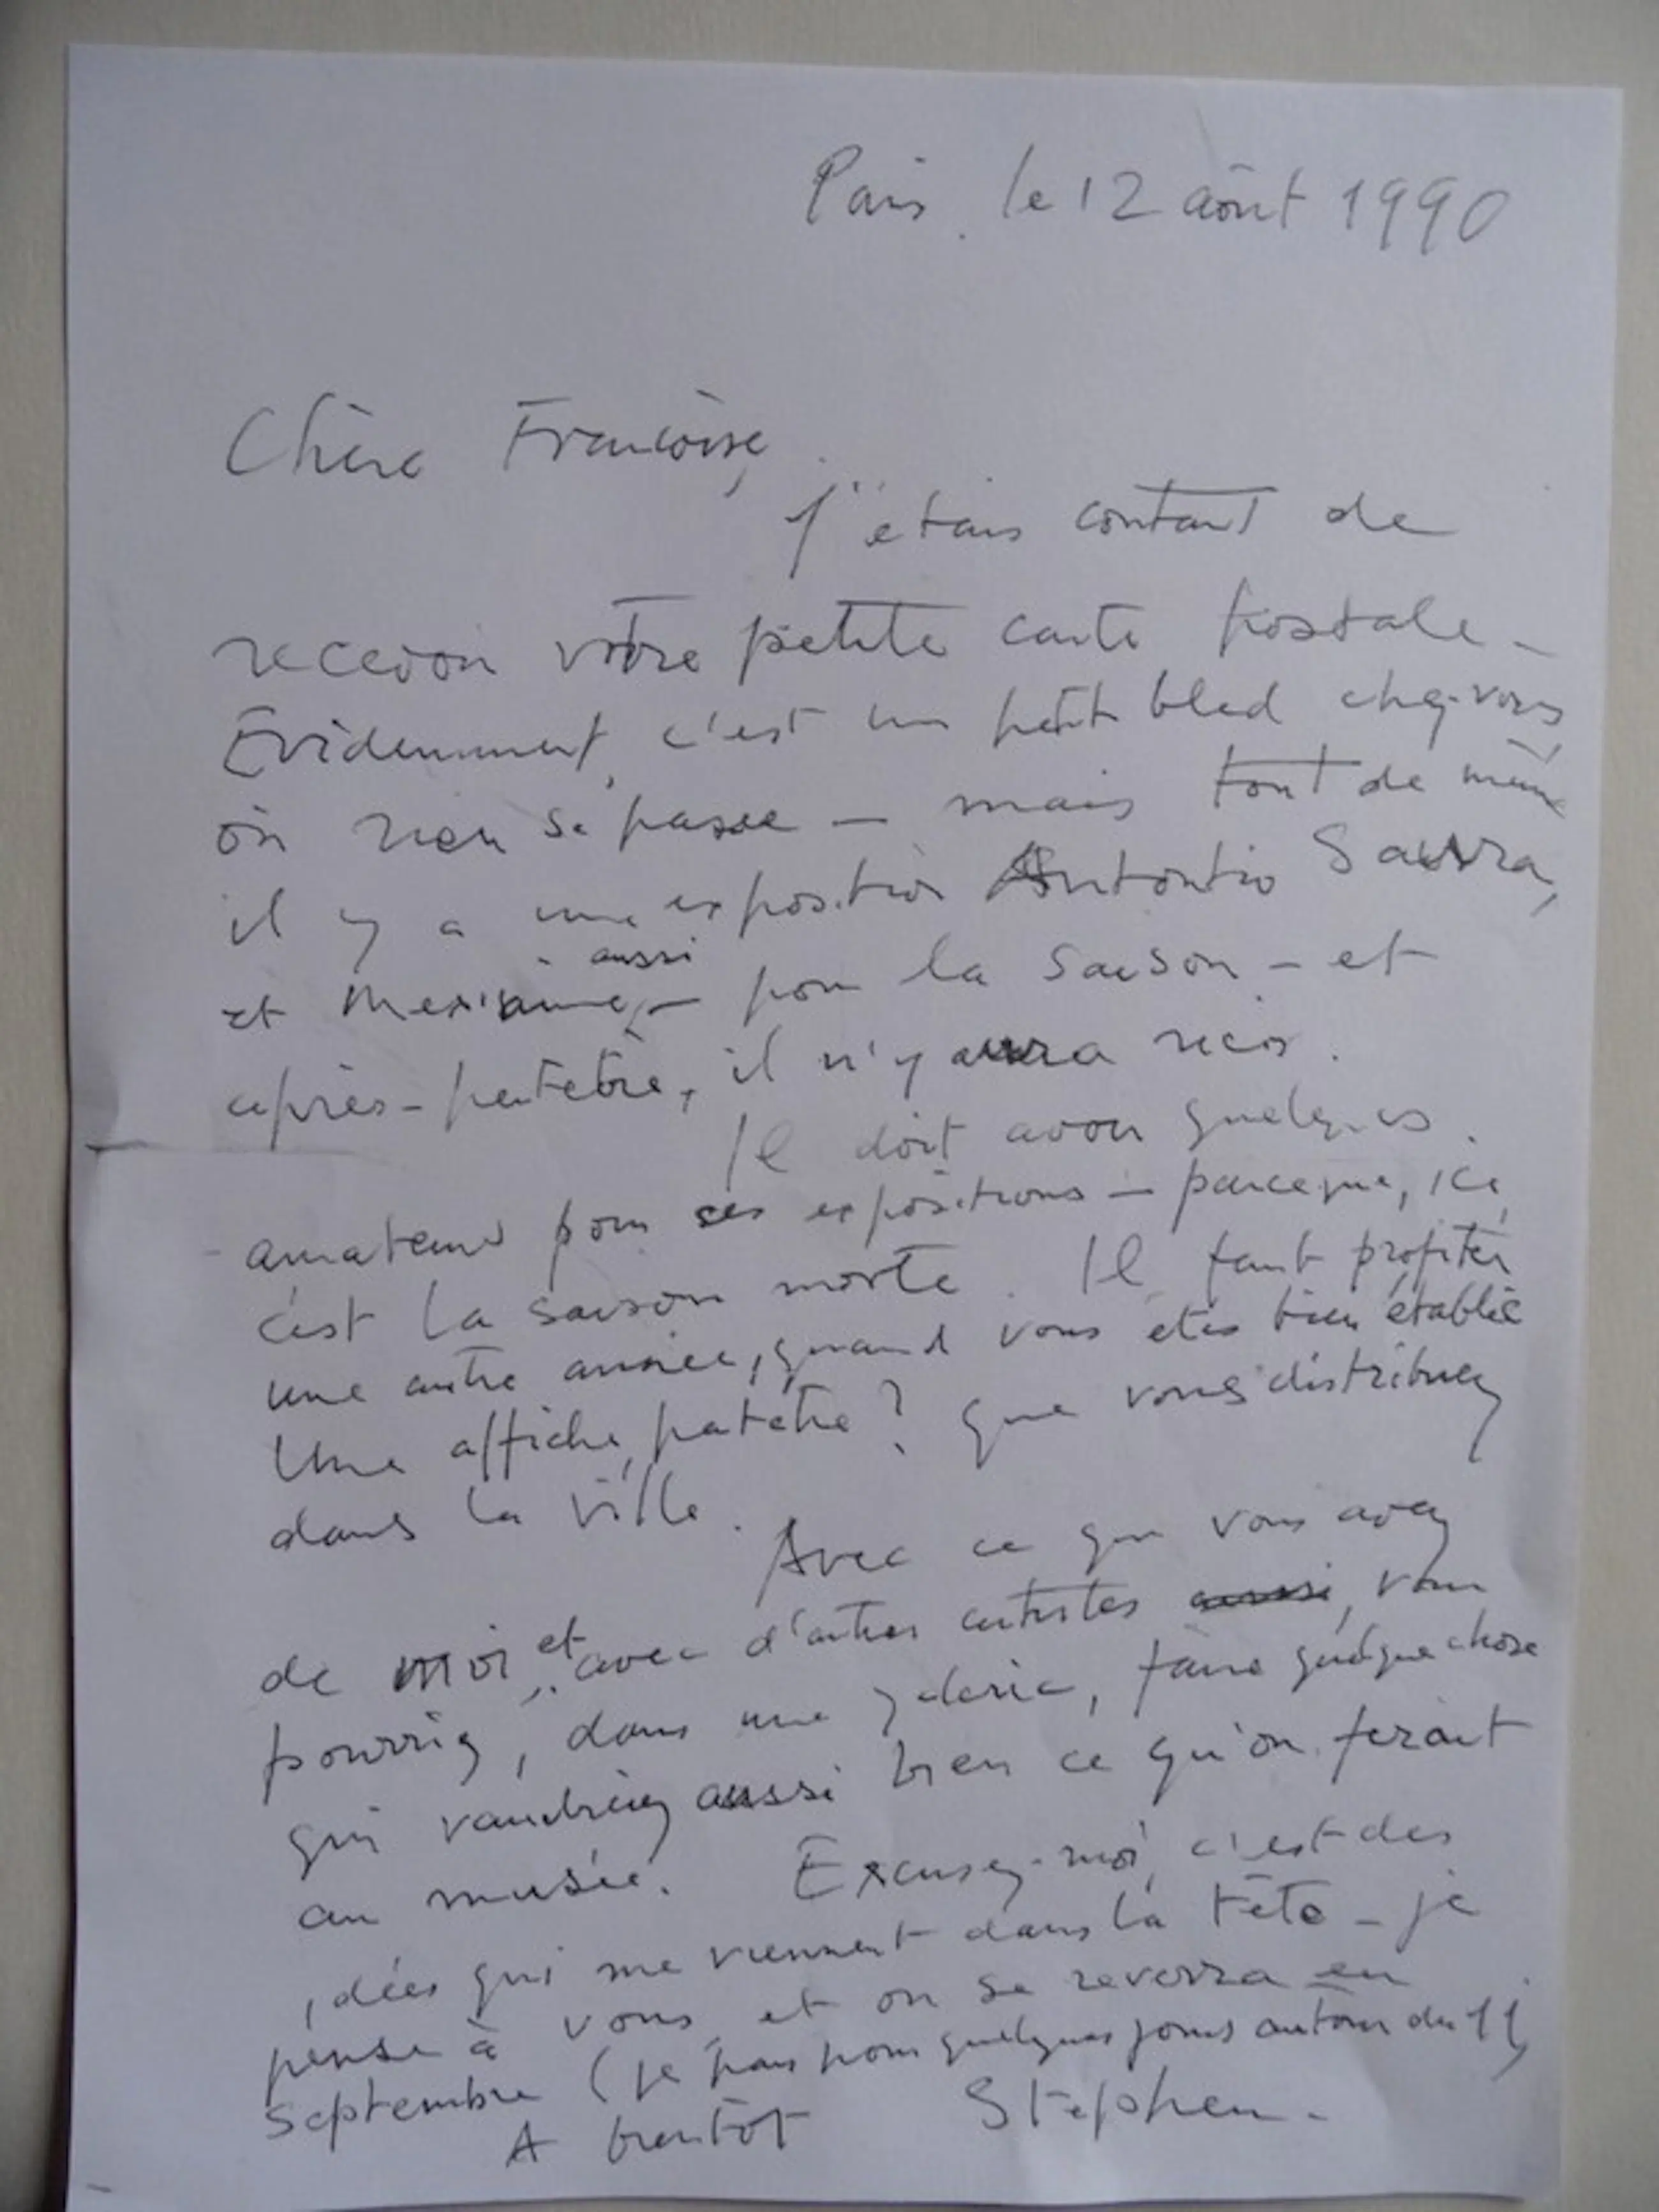 Paris, le 12 août 1990
Chère Françoise,
J'étais content de
recevoir votre petite carte postale -
Evidemment, c'est un petit bled chez-vous
où rien se passe - mais tout de même
il y a une exposition Antontio Saura,
aussi
et - pour la saison - et
après - peutetre, il n'y aura rien.
Il doit avoir quelques
amateurs pour ses expositions - parceque, ici,
c'est la saison morte. Il faut profiter
une autre année, quand vous etes bien établie
Une affiche, peutetre? que vous distribuez
dans la ville.
Avec ce que vous avez
de moi, et avec d'autres artistes aussi, vous
pourriez, dans une galerie, faire quelque chose
qui vaudriez aussi bien ce qu'on ferait
au musée. Excusez-moi, c'est des
idées qui me viennent dans la tête - je
pense à vous, et on se reverra en
Septembre (je pars pour quelques jours autour du
A bientôt Stephen -